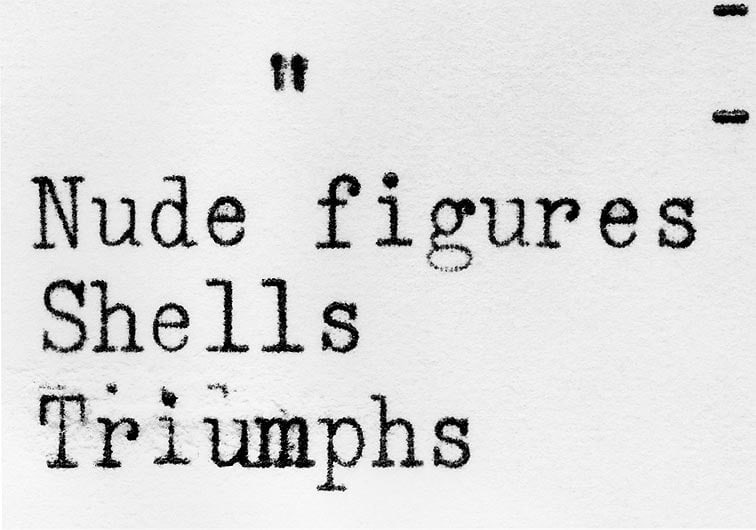 -
"
-
Nude figures
Shells
Triumphs